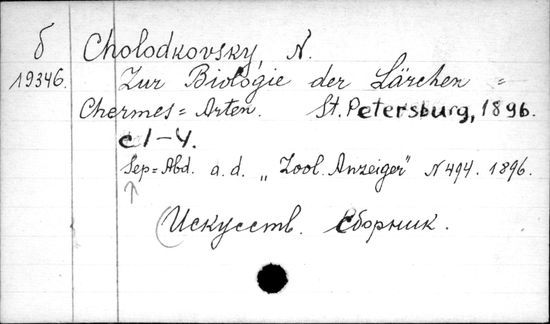 б Cholodkovsky, N.
19346. Zur Biologie der Lärchen =
Chermes = Arten. St. Petersburg, 1896.
c 1-4.
Sep = Abd. a. d. „Zool. Anzeiger" N 494. 1896.
(Искусств. Сборник.